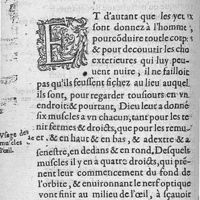 ET d'autant que les yeux
sont donnez à l'homme
pour cõduire toute corps
& pour decouurir les cho
exterieures qui luy peuu
nuire, il ne failloit
pas qu'ils feussent fichez au lieu auquel
ils sont, pour regarder tousiours en vn
endroit: & pourtant, Dieu leur a donné
six muscles a vn chacun, tant pour les te-
nir fermes & droicts, que pour les remu-
er, & en haut & en bas, & adextre & a
senestre, en dedans & en rond. Desquels
muscles il y en a quatre droicts, qui pre-
nent leur commencement du fond de
l'orbite, & enuironnant le nerf optique
vont finir au milieu de l'œil, à sçauoir
Vsage des
muscles
l'œil.